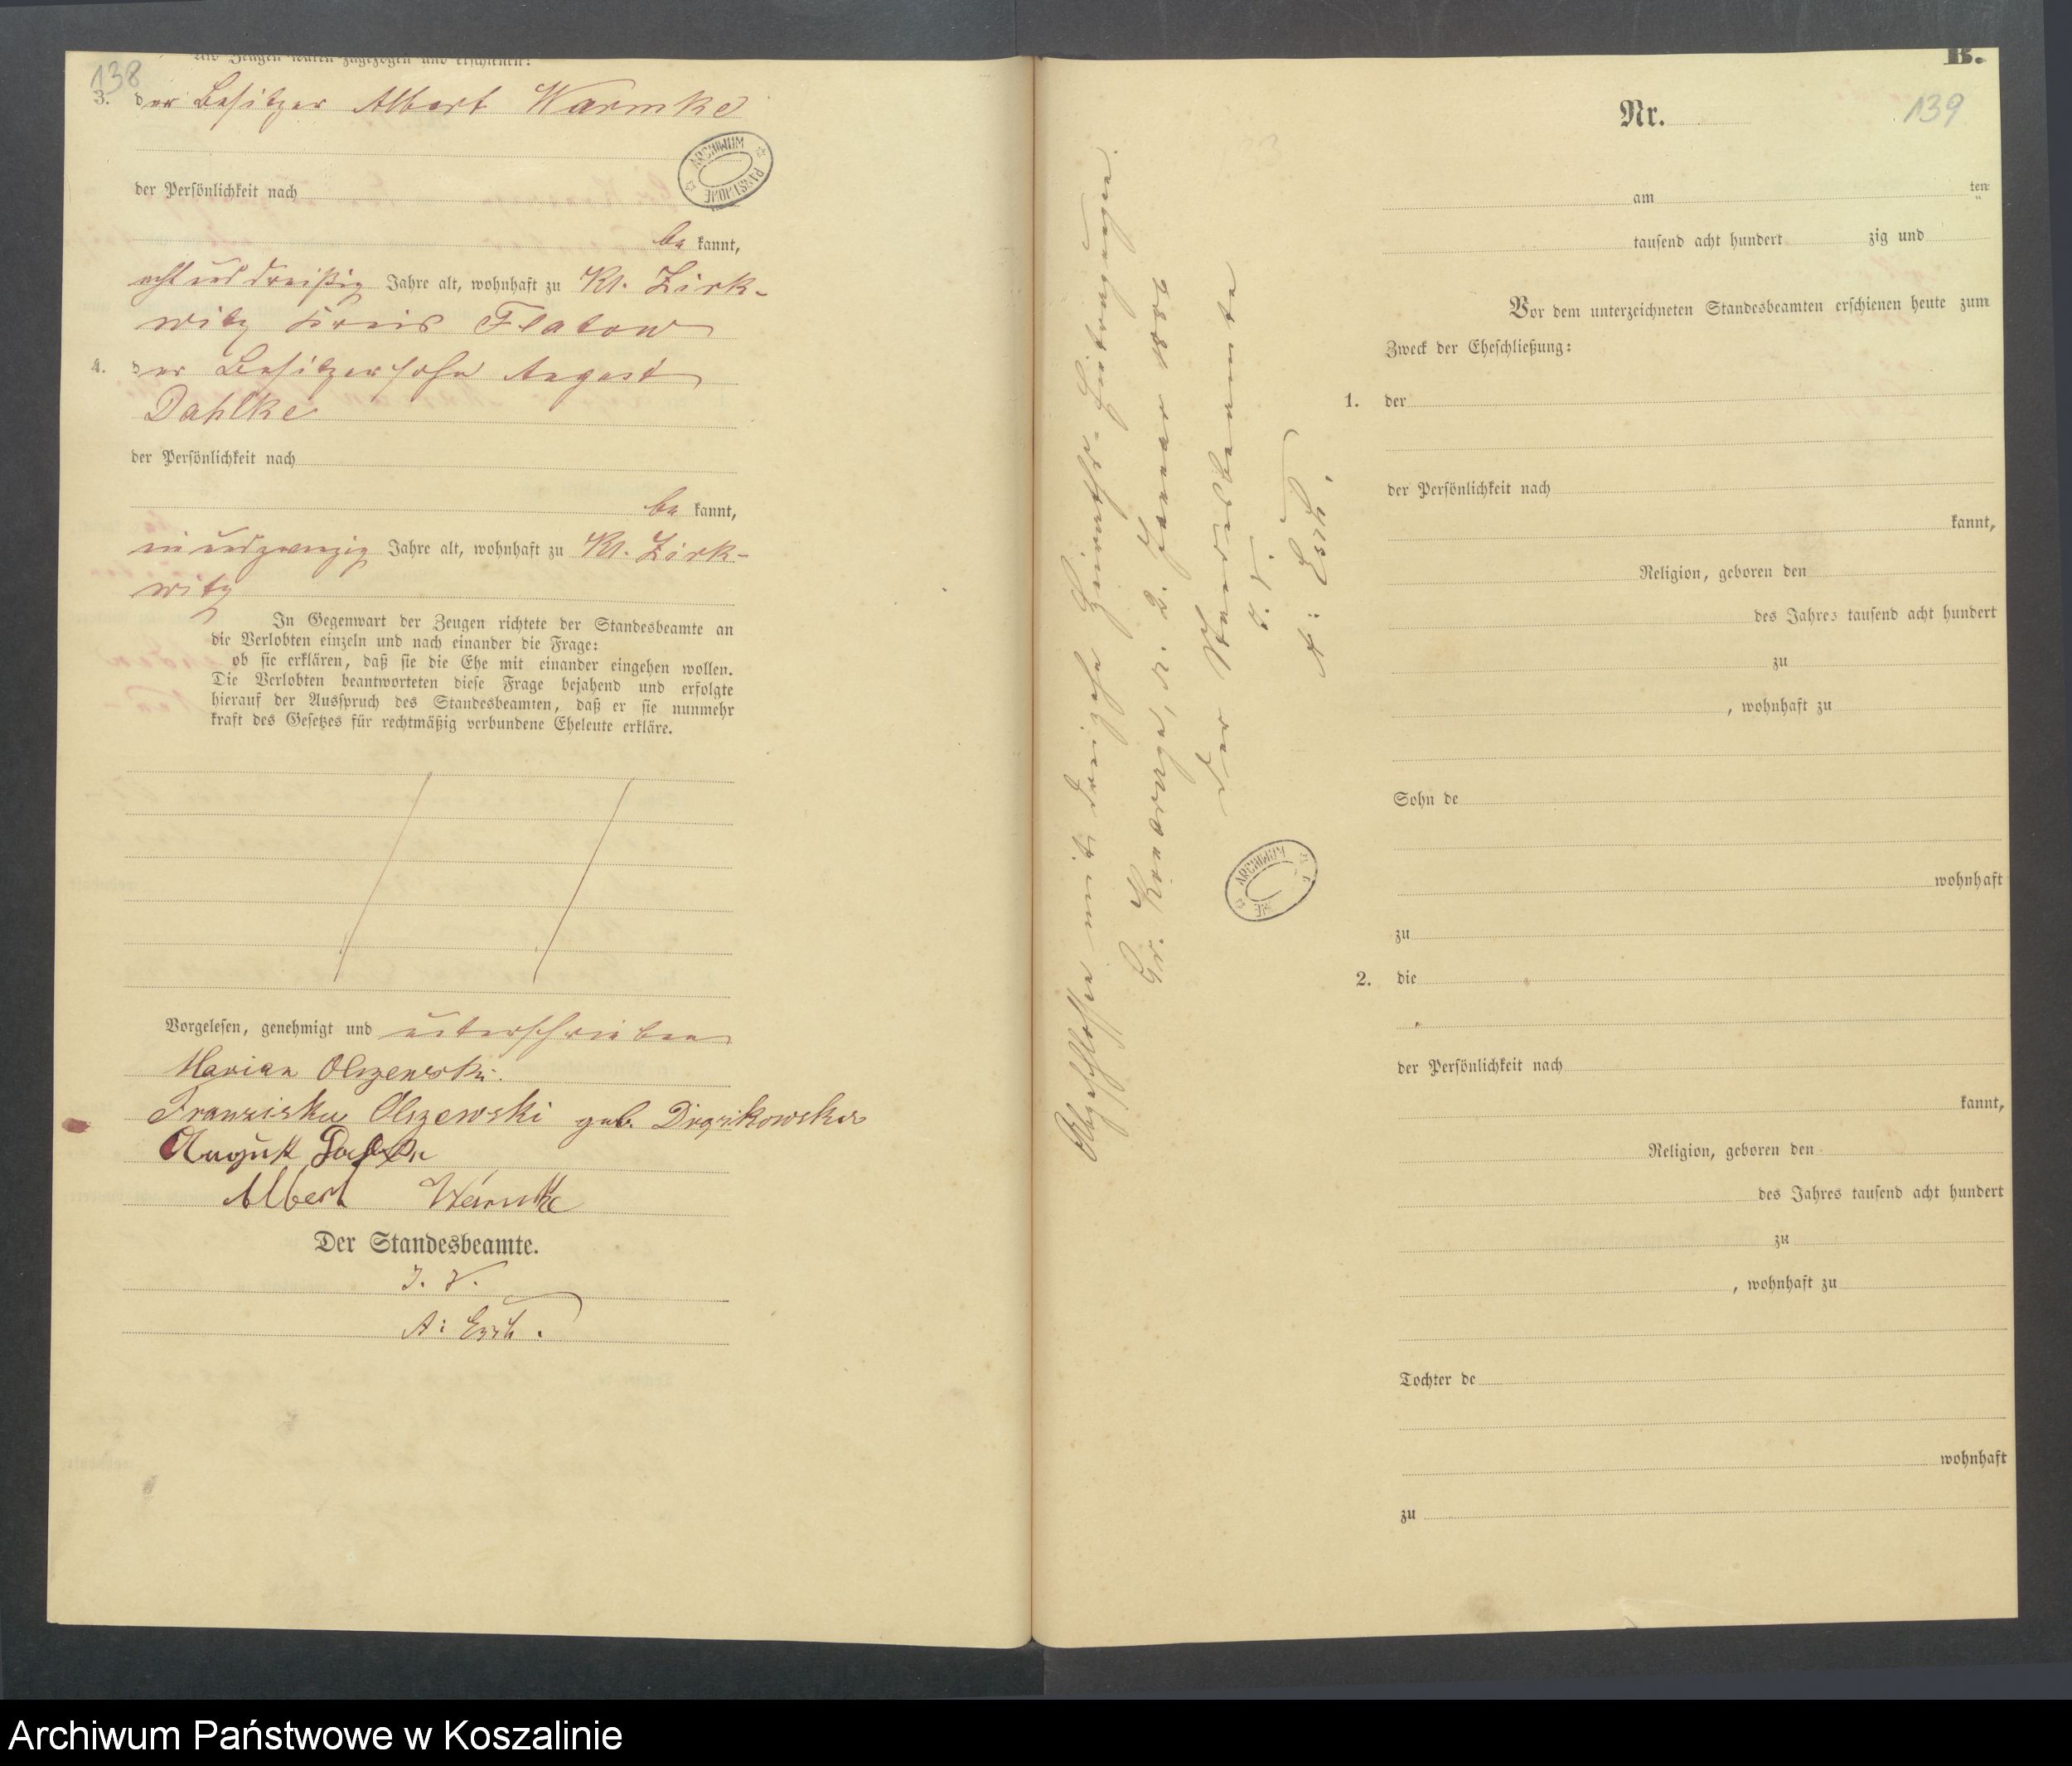 138
Als Zeugen waren zugezogen und erschienen:
3. der Besitzer Albert Warmke
ARCHIWUM PAŃSTWOWE
der Persönlichkeit nach
be kannt,
acht und dreißig Jahre alt, wohnhaft zu Kl. Zirk-
witz Kreis Flatow
4. der Besitzersohn August
Dahlke
der Persönlichkeit nach
be kannt,
ein und zwanzig Jahre alt, wohnhaft zu Kl. Zirk-
witz
In Gegenwart der Zeugen richtete der Standesbeamte an
die Verlobten einzeln und nach einander die Frage:
ob sie erklären, daß sie die Ehe mit einander eingehen wollen.
Die Verlobten beantworteten diese Frage bejahend und erfolgte
hierauf der Ausspruch des Standesbeamten, daß er sie nunmehr
kraft des Gesetzes für rechtmäßig verbundene Eheleute erkläre.
Vorgelesen, genehmigt und unterschrieben
Marian Olszewski.
Franziska Olszewski geb.
August Dahlke
Albert Warmke
Der Standesbeamte.
I. V.
A:
Abgeschlossen mit dreizehn Heiraths-Eintragungen.
Gr. , d. 2. Januar 1886
Der Standesbeamte
I. V.
A:
ARCHIWUM
B.
139
Nr.
am ten
tausend acht hundert zig und
Vor dem unterzeichneten Standesbeamten erschienen heute zum
Zweck der Eheschließung:
1. der
der Persönlichkeit nach
kannt,
Religion, geboren den
des Jahres tausend acht hundert
zu
, wohnhaft zu
Sohn de
wohnhaft
zu
2. die
der Persönlichkeit nach
kannt,
Religion, geboren den
des Jahres tausend acht hundert
zu
, wohnhaft zu
Tochter de
wohnhaft
zu
Archiwum Państwowe w Koszalinie